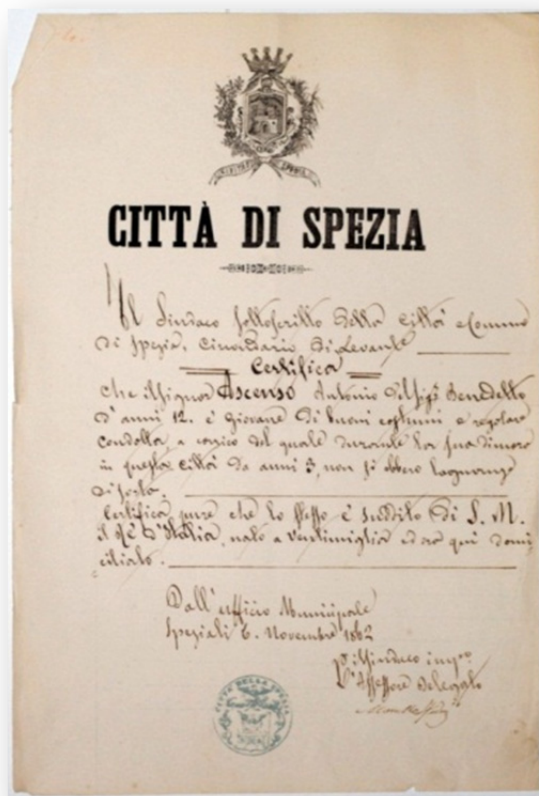 CITTÀ DI SPEZIA
Il Sindaco sottoscritto della Città e Comune
di Spezia, Circondario di Levante
Certifica
che il signor Ascenso Antonio del Sigr Benedetto
d'anni 12. è giovane di buoni costumi e regolare
condotta, a carico del quale durante la sua dimora
in questa Città da anni 3, non si ebbero lagnanze
di sorta.
Certifica pure che lo stesso è suddito di S. M.
il Rè d'Italia, nato a Ventimiglia ed ora qui domi
ciliato.
Dall'ufficio Municipale
Spezia li 6. Novembre 1862
pr il Sindaco
L'Assessore Delegato